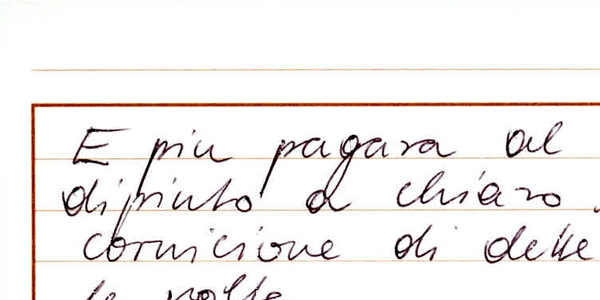 E piu pagara al
dipinto a chiaro
cornicione di dette
le volte